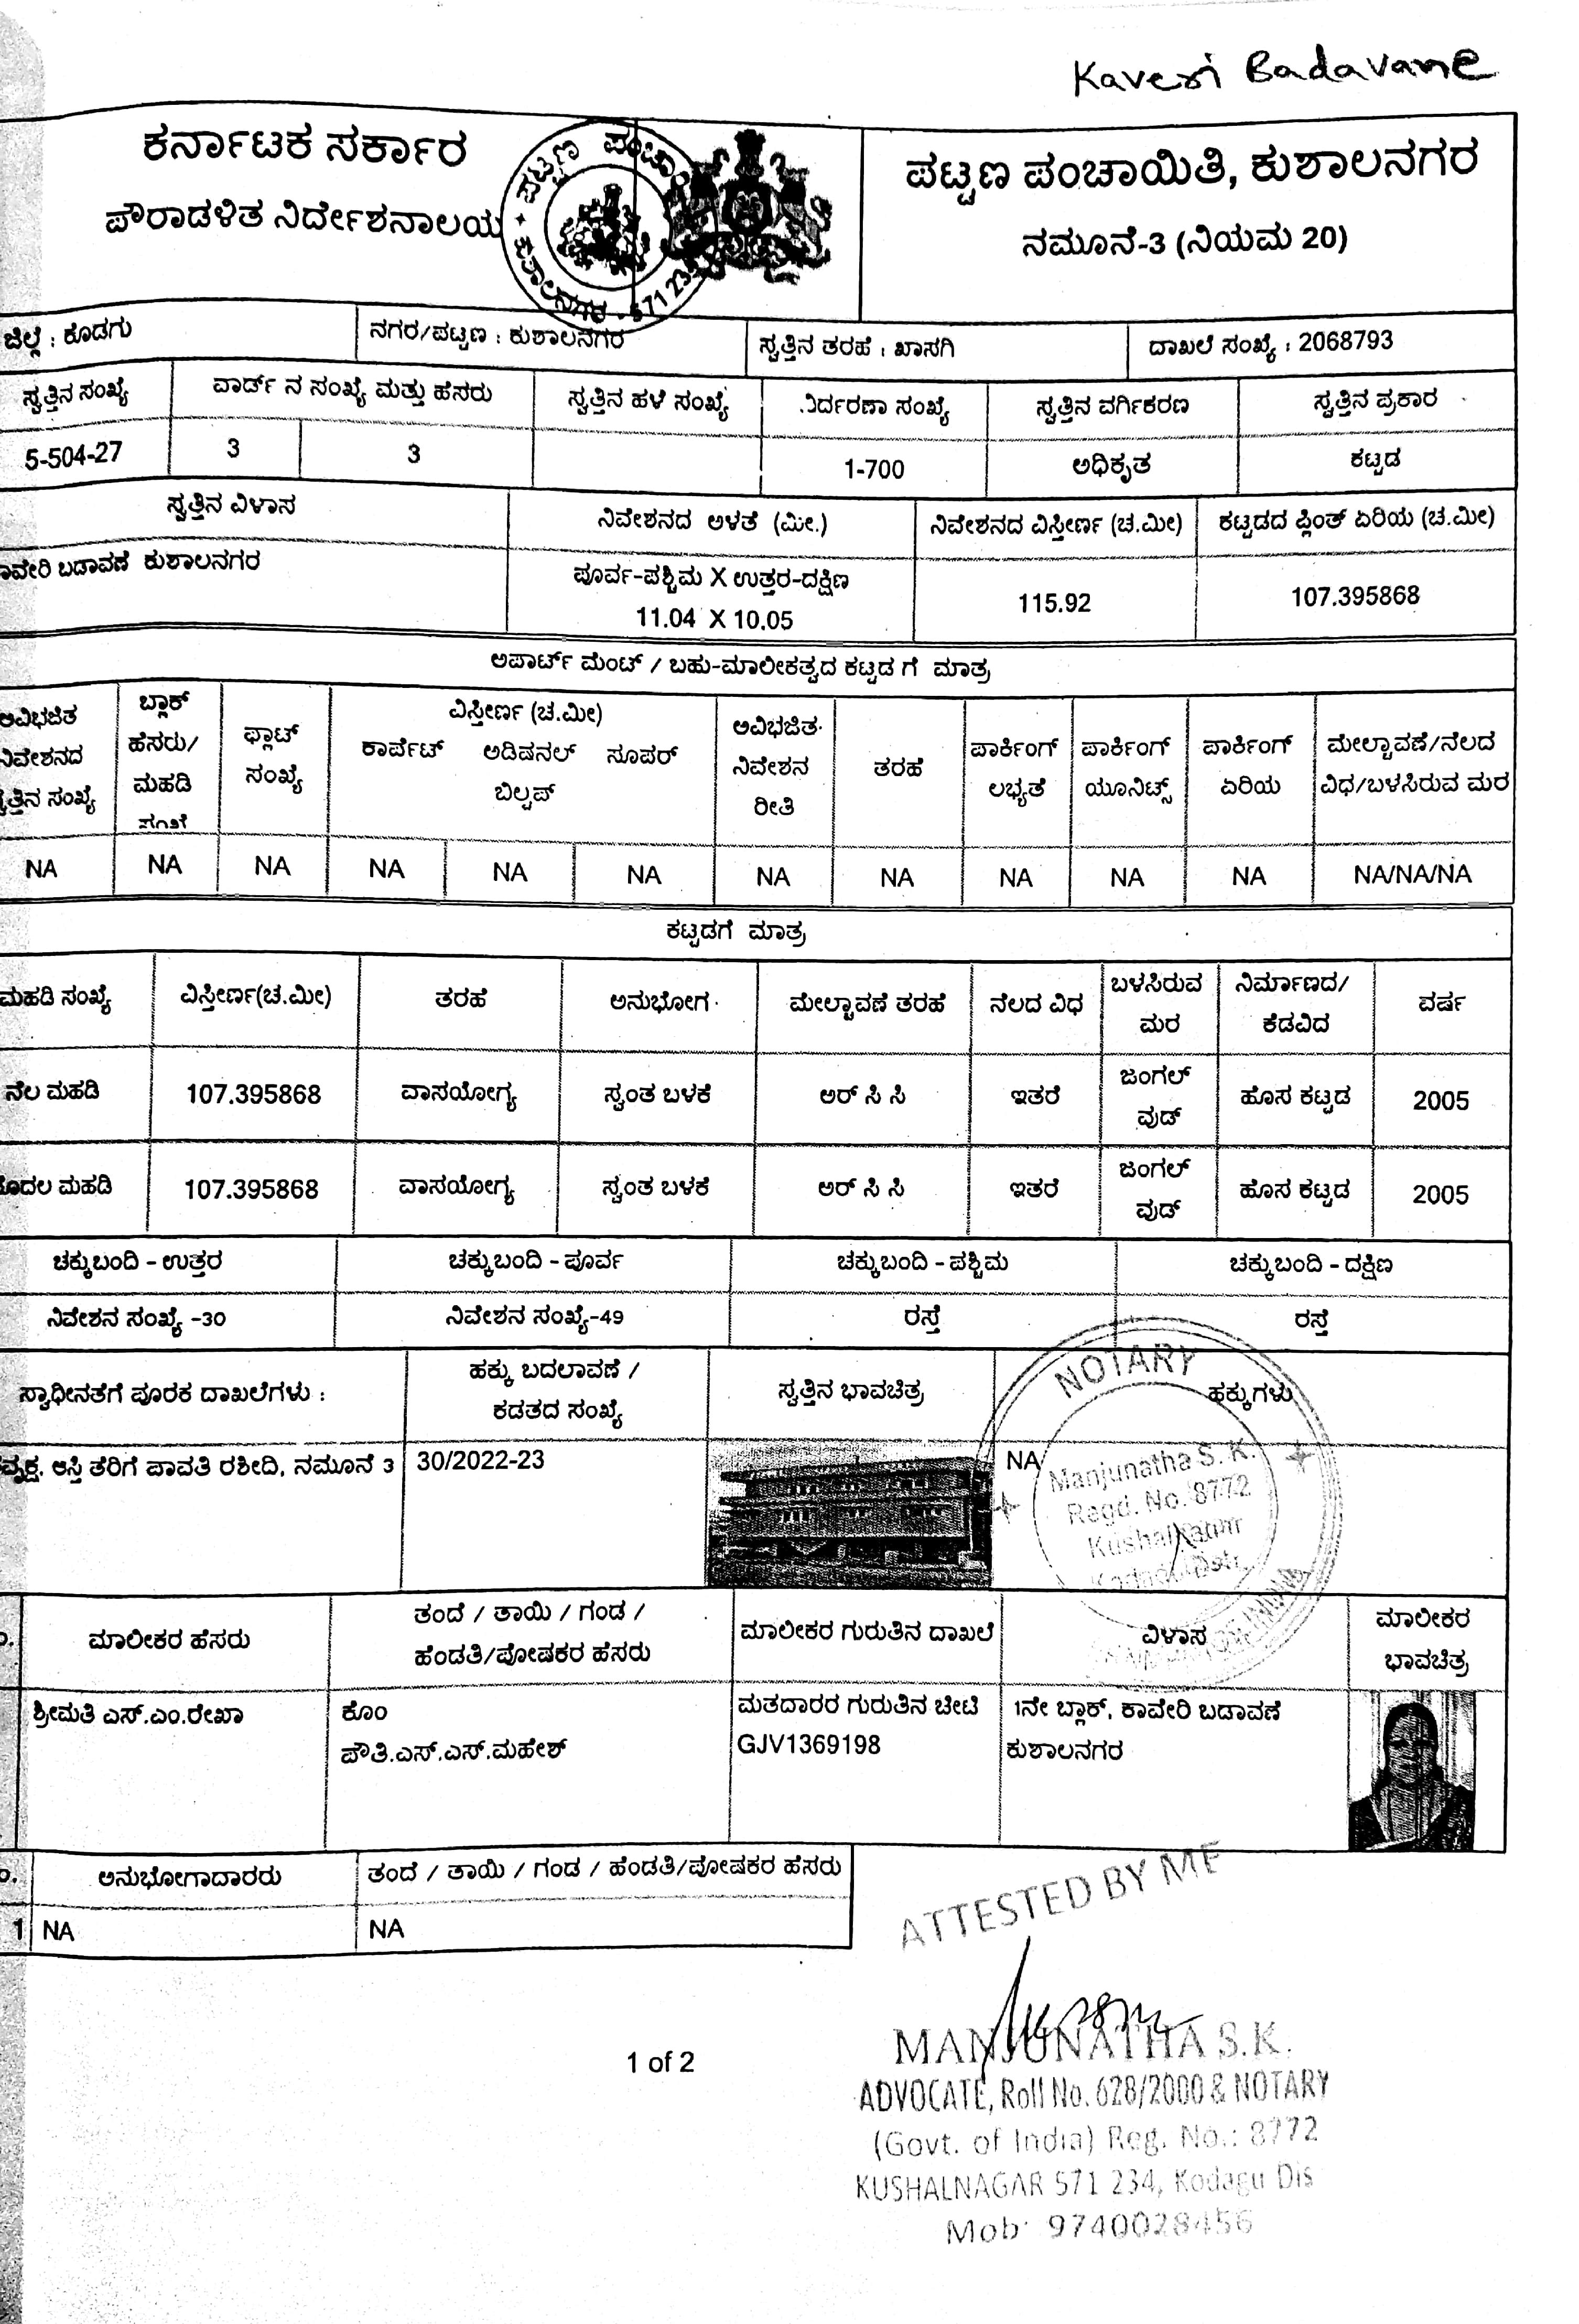 Kaveri Badavane
ಕರ್ನಾಟಕ ಸರ್ಕಾರ
ಪೌರಾಡಳಿತ ನಿರ್ದೇಶನಾಲಯ
ಪಟ್ಟಣ ಪಂಚಾಯಿತಿ, ಕುಶಾಲನಗರ
ನಮೂನೆ-3 (ನಿಯಮ 20)
ಜಿಲ್ಲೆ : ಕೊಡಗು ನಗರ/ಪಟ್ಟಣ : ಕುಶಾಲನಗರ ಸ್ವತ್ತಿನ ತರಹೆ : ಖಾಸಗಿ ದಾಖಲೆ ಸಂಖ್ಯೆ : 2068793
ಸ್ವತ್ತಿನ ಸಂಖ್ಯೆ ವಾರ್ಡ್ ನ ಸಂಖ್ಯೆ ಮತ್ತು ಹೆಸರು ಸ್ವತ್ತಿನ ಹಳೆ ಸಂಖ್ಯೆ ನಿರ್ದರಣಾ ಸಂಖ್ಯೆ ಸ್ವತ್ತಿನ ವರ್ಗಿಕರಣ ಸ್ವತ್ತಿನ ಪ್ರಕಾರ
5-504-27 3 3 1-700 ಅಧಿಕೃತ ಕಟ್ಟಡ
ಸ್ವತ್ತಿನ ವಿಳಾಸ ನಿವೇಶನದ ಅಳತೆ (ಮೀ.) ನಿವೇಶನದ ವಿಸ್ತೀರ್ಣ (ಚ.ಮೀ) ಕಟ್ಟಡದ ಪ್ಲಿಂತ್ ಏರಿಯ (ಚ.ಮೀ)
ಕಾವೇರಿ ಬಡಾವಣೆ ಕುಶಾಲನಗರ ಪೂರ್ವ-ಪಶ್ಚಿಮ X ಉತ್ತರ-ದಕ್ಷಿಣ
11.04 X 10.05 115.92 107.395868
ಅಪಾರ್ಟ್ ಮೆಂಟ್ / ಬಹು-ಮಾಲೀಕತ್ವದ ಕಟ್ಟಡ ಗೆ ಮಾತ್ರ
ಅವಿಭಜಿತ ನಿವೇಶನದ ಸ್ವತ್ತಿನ ಸಂಖ್ಯೆ ಬ್ಲಾಕ್ ಹೆಸರು/ ಮಹಡಿ ಸಂಖ್ಯೆ ಫ್ಲಾಟ್ ಸಂಖ್ಯೆ ವಿಸ್ತೀರ್ಣ (ಚ.ಮೀ) ಕಾರ್ಪೆಟ್ ಅಡಿಷನಲ್ ಬಿಲ್ಟಪ್ ಸೂಪರ್ ಅವಿಭಜಿತ ನಿವೇಶನ ರೀತಿ ತರಹೆ ಪಾರ್ಕಿಂಗ್ ಲಭ್ಯತೆ ಪಾರ್ಕಿಂಗ್ ಯೂನಿಟ್ಸ್ ಪಾರ್ಕಿಂಗ್ ಏರಿಯ ಮೇಲ್ಚಾವಣೆ/ನೆಲದ ವಿಧ/ಬಳಸಿರುವ ಮರ
NA NA NA NA NA NA NA NA NA NA NA NA/NA/NA
ಕಟ್ಟಡಗೆ ಮಾತ್ರ
ಮಹಡಿ ಸಂಖ್ಯೆ ವಿಸ್ತೀರ್ಣ(ಚ.ಮೀ) ತರಹೆ ಅನುಭೋಗ ಮೇಲ್ಚಾವಣೆ ತರಹೆ ನೆಲದ ವಿಧ ಬಳಸಿರುವ ಮರ ನಿರ್ಮಾಣದ/ ಕೆಡವಿದ ವರ್ಷ
ನೆಲ ಮಹಡಿ 107.395868 ವಾಸಯೋಗ್ಯ ಸ್ವಂತ ಬಳಕೆ ಅರ್ ಸಿ ಸಿ ಇತರೆ ಜಂಗಲ್ ವುಡ್ ಹೊಸ ಕಟ್ಟಡ 2005
ಮೊದಲ ಮಹಡಿ 107.395868 ವಾಸಯೋಗ್ಯ ಸ್ವಂತ ಬಳಕೆ ಅರ್ ಸಿ ಸಿ ಇತರೆ ಜಂಗಲ್ ವುಡ್ ಹೊಸ ಕಟ್ಟಡ 2005
ಚಕ್ಕುಬಂದಿ - ಉತ್ತರ ಚಕ್ಕುಬಂದಿ - ಪೂರ್ವ ಚಕ್ಕುಬಂದಿ - ಪಶ್ಚಿಮ ಚಕ್ಕುಬಂದಿ - ದಕ್ಷಿಣ
ನಿವೇಶನ ಸಂಖ್ಯೆ -30 ನಿವೇಶನ ಸಂಖ್ಯೆ-49 ರಸ್ತೆ ರಸ್ತೆ
ಸ್ವಾಧೀನತೆಗೆ ಪೂರಕ ದಾಖಲೆಗಳು : ಹಕ್ಕು ಬದಲಾವಣೆ / ಕಡತದ ಸಂಖ್ಯೆ ಸ್ವತ್ತಿನ ಭಾವಚಿತ್ರ ಹಕ್ಕುಗಳು
ಆಸ್ತಿ ತೆರಿಗೆ ಪಾವತಿ ರಶೀದಿ, ನಮೂನೆ 3 30/2022-23 NA
NOTARY
Manjunatha S. K.
Regd. No. 8772
Kushalnagar
ಮಾಲೀಕರ ಹೆಸರು ತಂದೆ / ತಾಯಿ / ಗಂಡ / ಹೆಂಡತಿ/ಪೋಷಕರ ಹೆಸರು ಮಾಲೀಕರ ಗುರುತಿನ ದಾಖಲೆ ವಿಳಾಸ ಮಾಲೀಕರ ಭಾವಚಿತ್ರ
ಶ್ರೀಮತಿ ಎಸ್.ಎಂ.ರೇಖಾ ಕೊಂ ಮತದಾರರ ಗುರುತಿನ ಚೀಟಿ 1ನೇ ಬ್ಲಾಕ್, ಕಾವೇರಿ ಬಡಾವಣೆ
ಪೌತಿ.ಎಸ್.ಎಸ್.ಮಹೇಶ್ GJV1369198 ಕುಶಾಲನಗರ
ಅನುಭೋಗಾದಾರರು ತಂದೆ / ತಾಯಿ / ಗಂಡ / ಹೆಂಡತಿ/ಪೋಷಕರ ಹೆಸರು
1 NA NA
ATTESTED BY ME
MANJUNATHA S.K.
ADVOCATE, Roll No. 628/2000 & NOTARY
(Govt. of India) Reg. No.: 8772
KUSHALNAGAR 571 234, Kodagu Dis
Mob: 9740028456
1 of 2